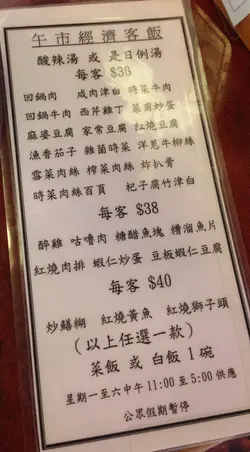 午市經濟客飯
酸辣湯 或 是日例湯
每客 $36
回鍋肉 咸肉津白 時菜牛肉
回鍋牛肉 西芹雞丁 菜甫炒蛋
麻婆豆腐 家常豆腐 紅燒豆腐
漁香茄子 雜菌時菜 洋蔥牛柳絲
雪菜肉絲 榨菜肉絲 炸扒骨
時菜肉絲百頁 杞子腐竹津白
每客 $38
醉雞 咕嚕肉 糖醋魚塊 糟溜魚片
紅燒肉排 蝦仁炒蛋 豆板蝦仁豆腐
每客 $40
炒鱔糊 紅燒黃魚 紅燒獅子頭
(以上任選一款)
菜飯 或 白飯 1 碗
星期一至六中午 11:00 至 5:00 供應
公眾假期暫停